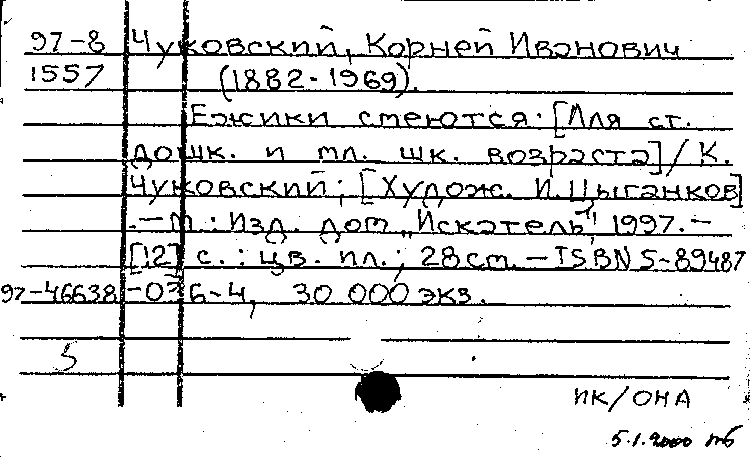 97-8 Чуковский, Корней Иванович
1557 (1882-1969).
Ежики смеются: [Для ст.
дошк. и мл. шк. возраста] / К.
Чуковский; [Худож. И. Цыганков]
.—М.: Изд. дом „Искатель“, 1997.—
[12] с.: цв. ил.; 28 см.—ISBN 5-89487
97-46638 -036-4, 30 000 экз.
5
ИК/ОНА
5.1.2000